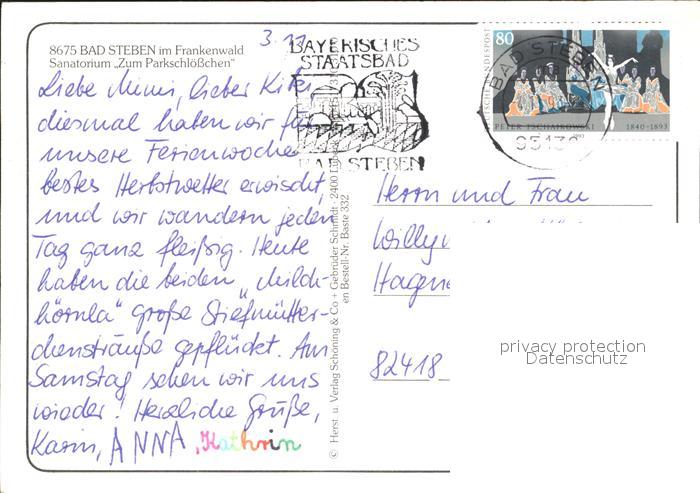 8675 BAD STEBEN im Frankenwald
Sanatorium „Zum Parkschlößchen"
3.11
Liebe Mimi, lieber
diesmal haben wir für
unsere Ferienwoche
bestes Herbstwetter erwischt,
und wir wandern jeden
Tag ganz fleißig. Heute
haben die beiden „Milch-
hörnla" große Stiefmütter-
chensträuße gepflückt. Am
Samstag sehen wir uns
wieder! Herzliche Grüße,
Karin, ANNA, Kathrin
BAYERISCHES
STAATSBAD
BAD STEBEN
© Herst. u. Verlag Schöning & Co + Gebrüder Schmidt · 2400
en Bestell-Nr. Baste 332
80
DEUTSCHE BUNDESPOST
PETER TSCHAIKOWSKI 1840-1893
BAD STEBEN
95138
Herrn und Frau
Willy
Hagen
82418
privacy protection
Datenschutz